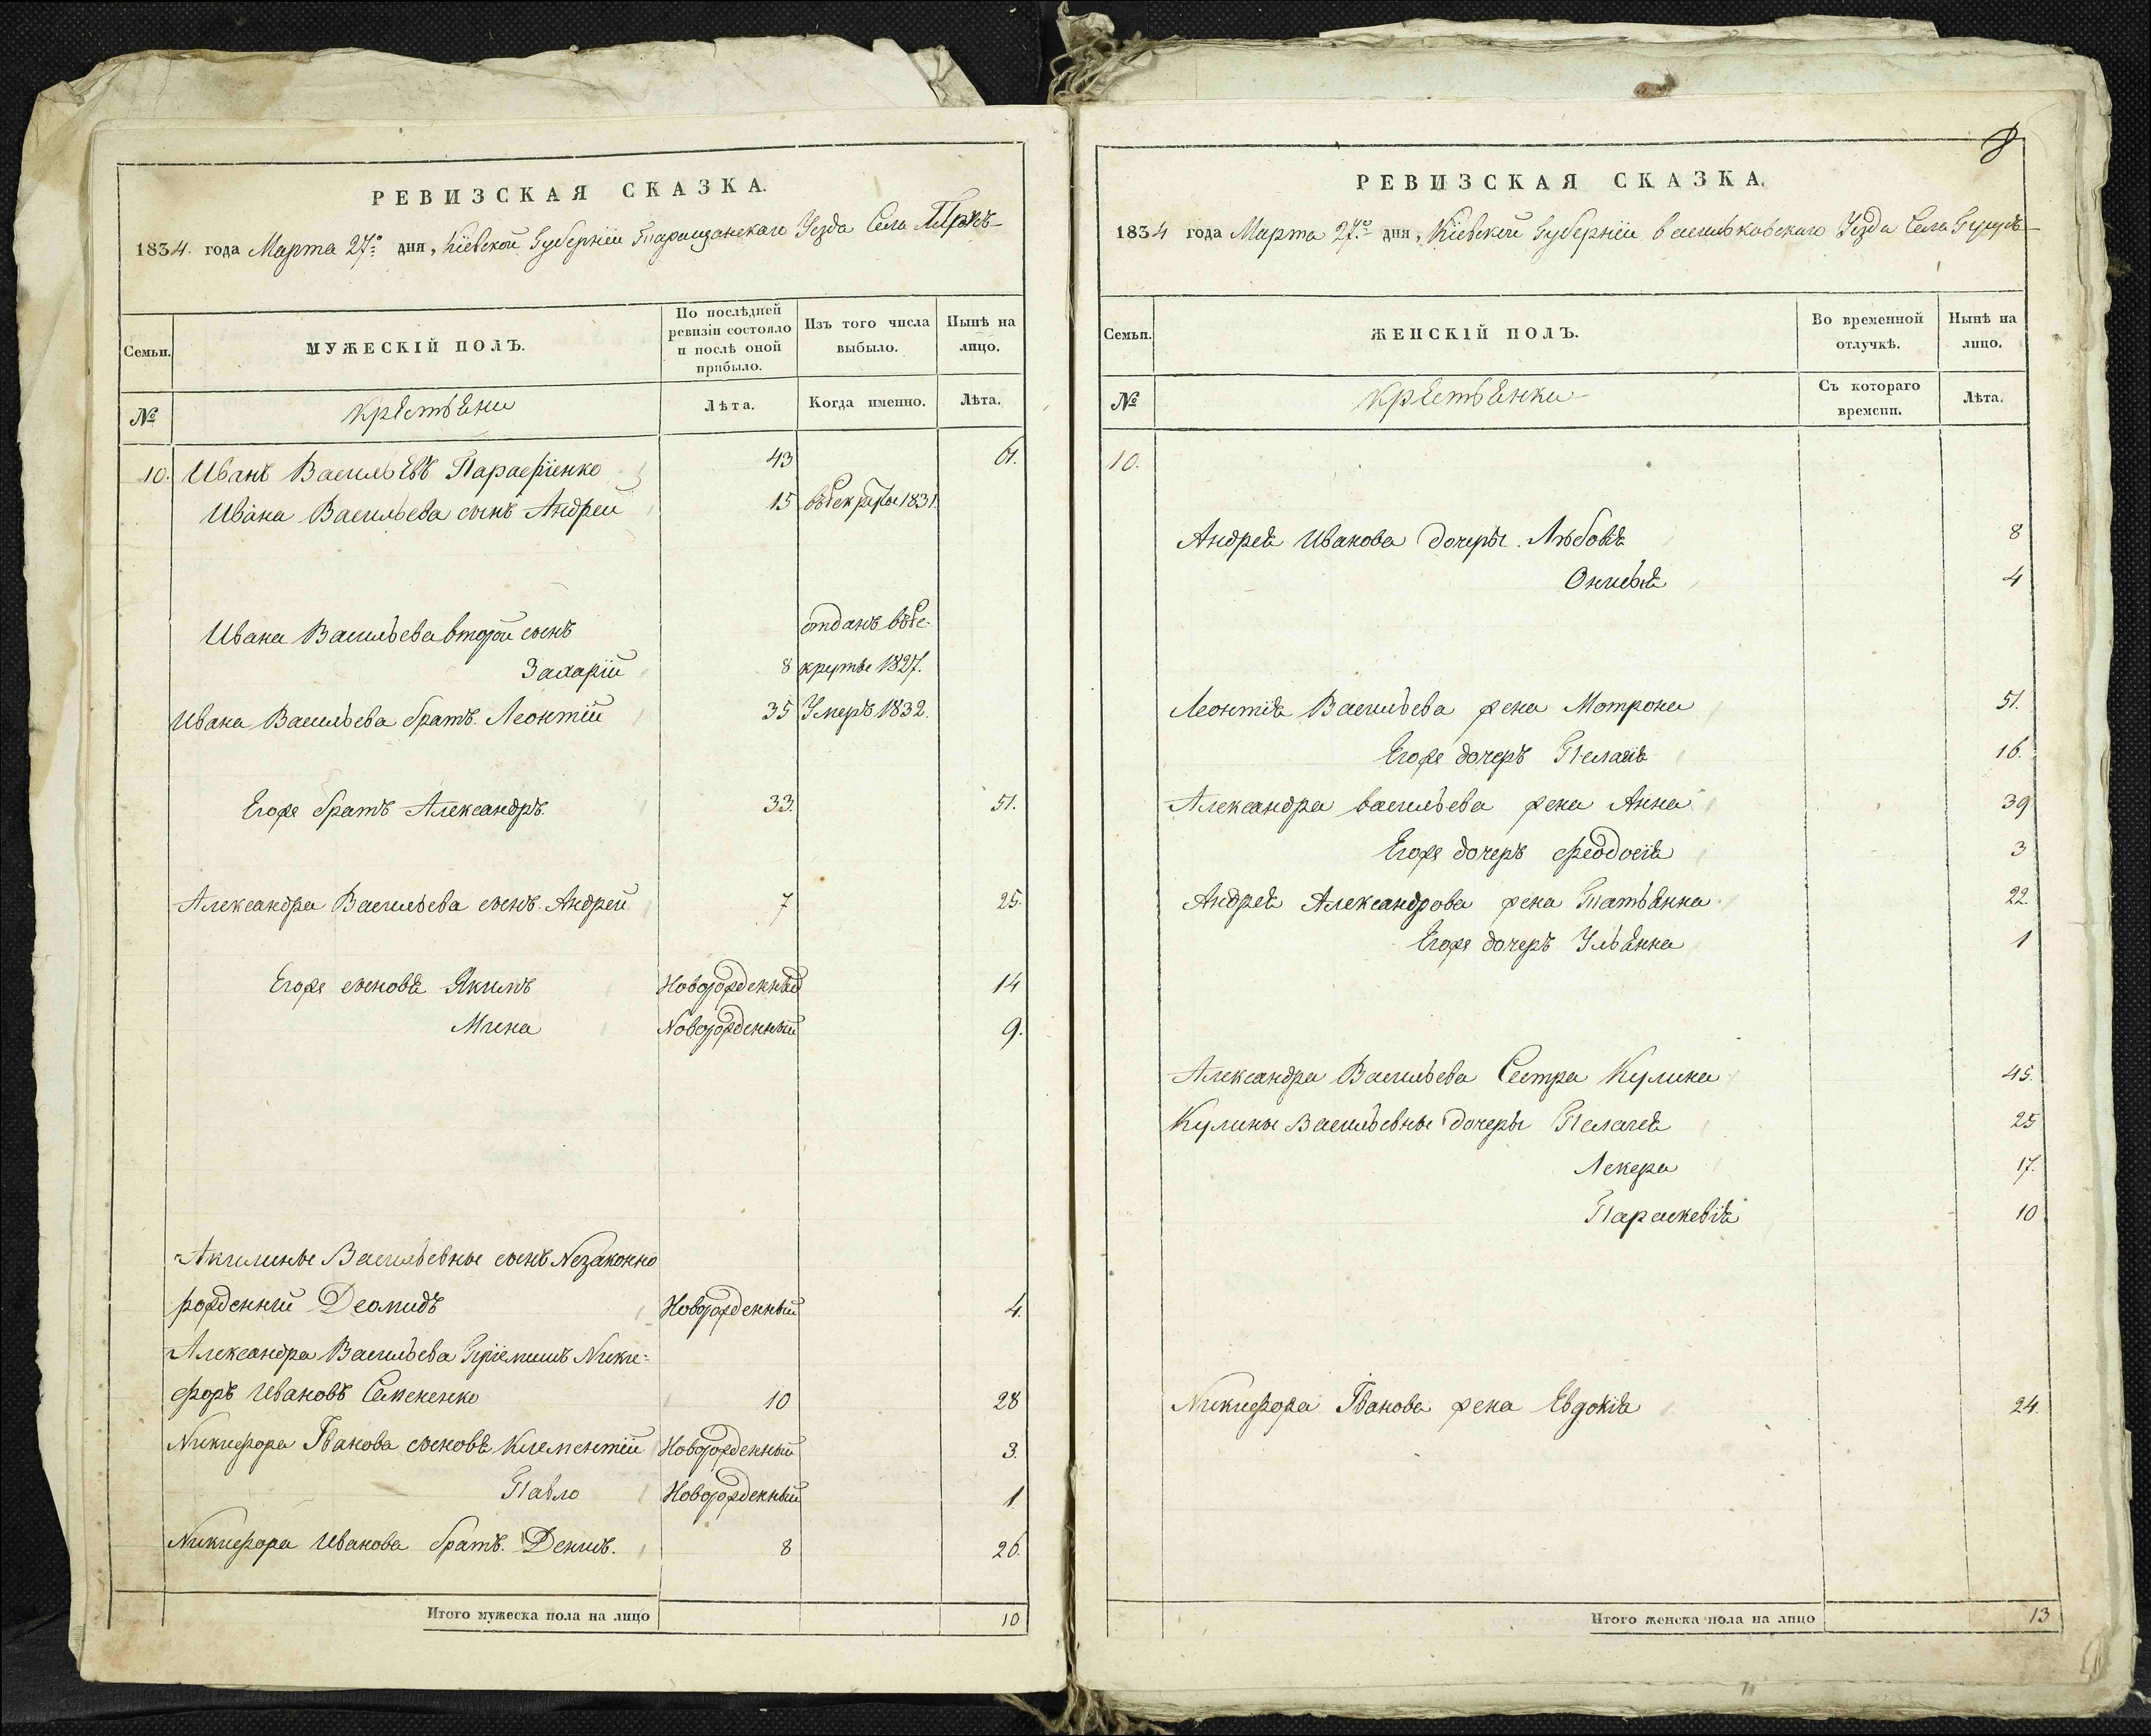 РЕВИЗСКАЯ СКАЗКА.
1834. года Марта 27го дня, Кіевской Губерніи Таращанскаго Уезда Села
Семьи.
МУЖЕСКІЙ ПОЛЪ.
По послѣдней ревизіи состояло и послѣ оной прибыло.
Изъ того числа выбыло.
Нынѣ на лицо.
№
крѣстьѣни
Лѣта.
Когда именно.
Лѣта.
10. Иванъ Васильѣвъ 43 61.
Ивана Васильева сынъ Андрей 15 1831.
Ивана Васильева второй сынъ отданъ въ Ре-
Захарій 8 круты 1827.
Ивана Васильева братъ Леонтій 35 Умеръ 1832.
Егоже братъ Александръ. 33. 51.
Александра Васильева сынъ Андрей 7 25.
Егоже сыновѣ Якимъ Новорожденный 14
Мина Новорожденный 9.
Акилины Васильевны сынъ Незаконно
рожденный Деомидъ Новорожденный 4.
Александра Васильева Пріемишъ Ники=
форъ Ивановъ Семененко 10 28
Никифора Іванова сыновѣ Климентій Новорожденный 3.
Павло Новорожденный 1
Никифора Иванова братъ Денисъ. 8 26.
Итого мужеска пола на лицо 10
8
РЕВИЗСКАЯ СКАЗКА.
1834 года Марта 27го дня, Кіевской Губерніи Васильковскаго Уезда Села
Семьи.
ЖЕНСКІЙ ПОЛЪ.
Во временной отлучкѣ.
Нынѣ на лицо.
№
крѣстьѣнки
Съ котораго времени.
Лѣта.
10.
Андреѣ Иванова дочеры Любовѣ 8
Онисіѣ 4
Леонтіѣ Васильева жена Мотрона 51.
Егоже дочеръ Пелагіѣ 16.
Александра Васильева жена Анна 39
Егоже дочеръ Феодосіѣ 3
Андреѣ Александрова жена Татьѣнна 22.
Егоже дочеръ Ульѣнна 1
Александра Васильева Сестра Кулина 45.
Кулины Васильевны дочеры Пелагеѣ 25
Лекера 17.
Параскевіѣ 10
Никифора Іванова жена Евдокіѣ 24.
Итого женска пола на лицо 13